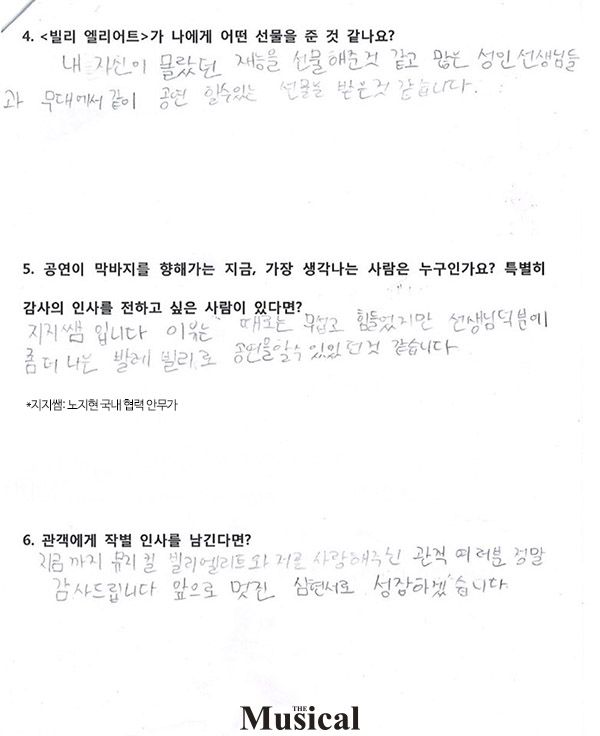 4. <빌리 엘리어트>가 나에게 어떤 선물을 준 것 같나요?
내 자신이 몰랐던 재능을 선물해준것 같고 많은 성인선생님들
과 무대에서 같이 공연 할수있는 선물을 받은것 같습니다.
5. 공연이 막바지를 향해가는 지금, 가장 생각나는 사람은 누구인가요? 특별히
감사의 인사를 전하고 싶은 사람이 있다면?
지지쌤 입니다 이유는 때로는 무섭고 힘들었지만 선생님덕분에
좀 더 나은 발레 빌리로 공연을할수 있었던것 같습니다
*지지쌤: 노지현 국내 협력 안무가
6. 관객에게 작별 인사를 남긴다면?
지금 까지 뮤지컬 빌리엘리트와 저를 사랑해주신 관객 여러분 정말
감사드립니다 앞으로 멋진 심현서로 성장하겠습니다
THE
Musical